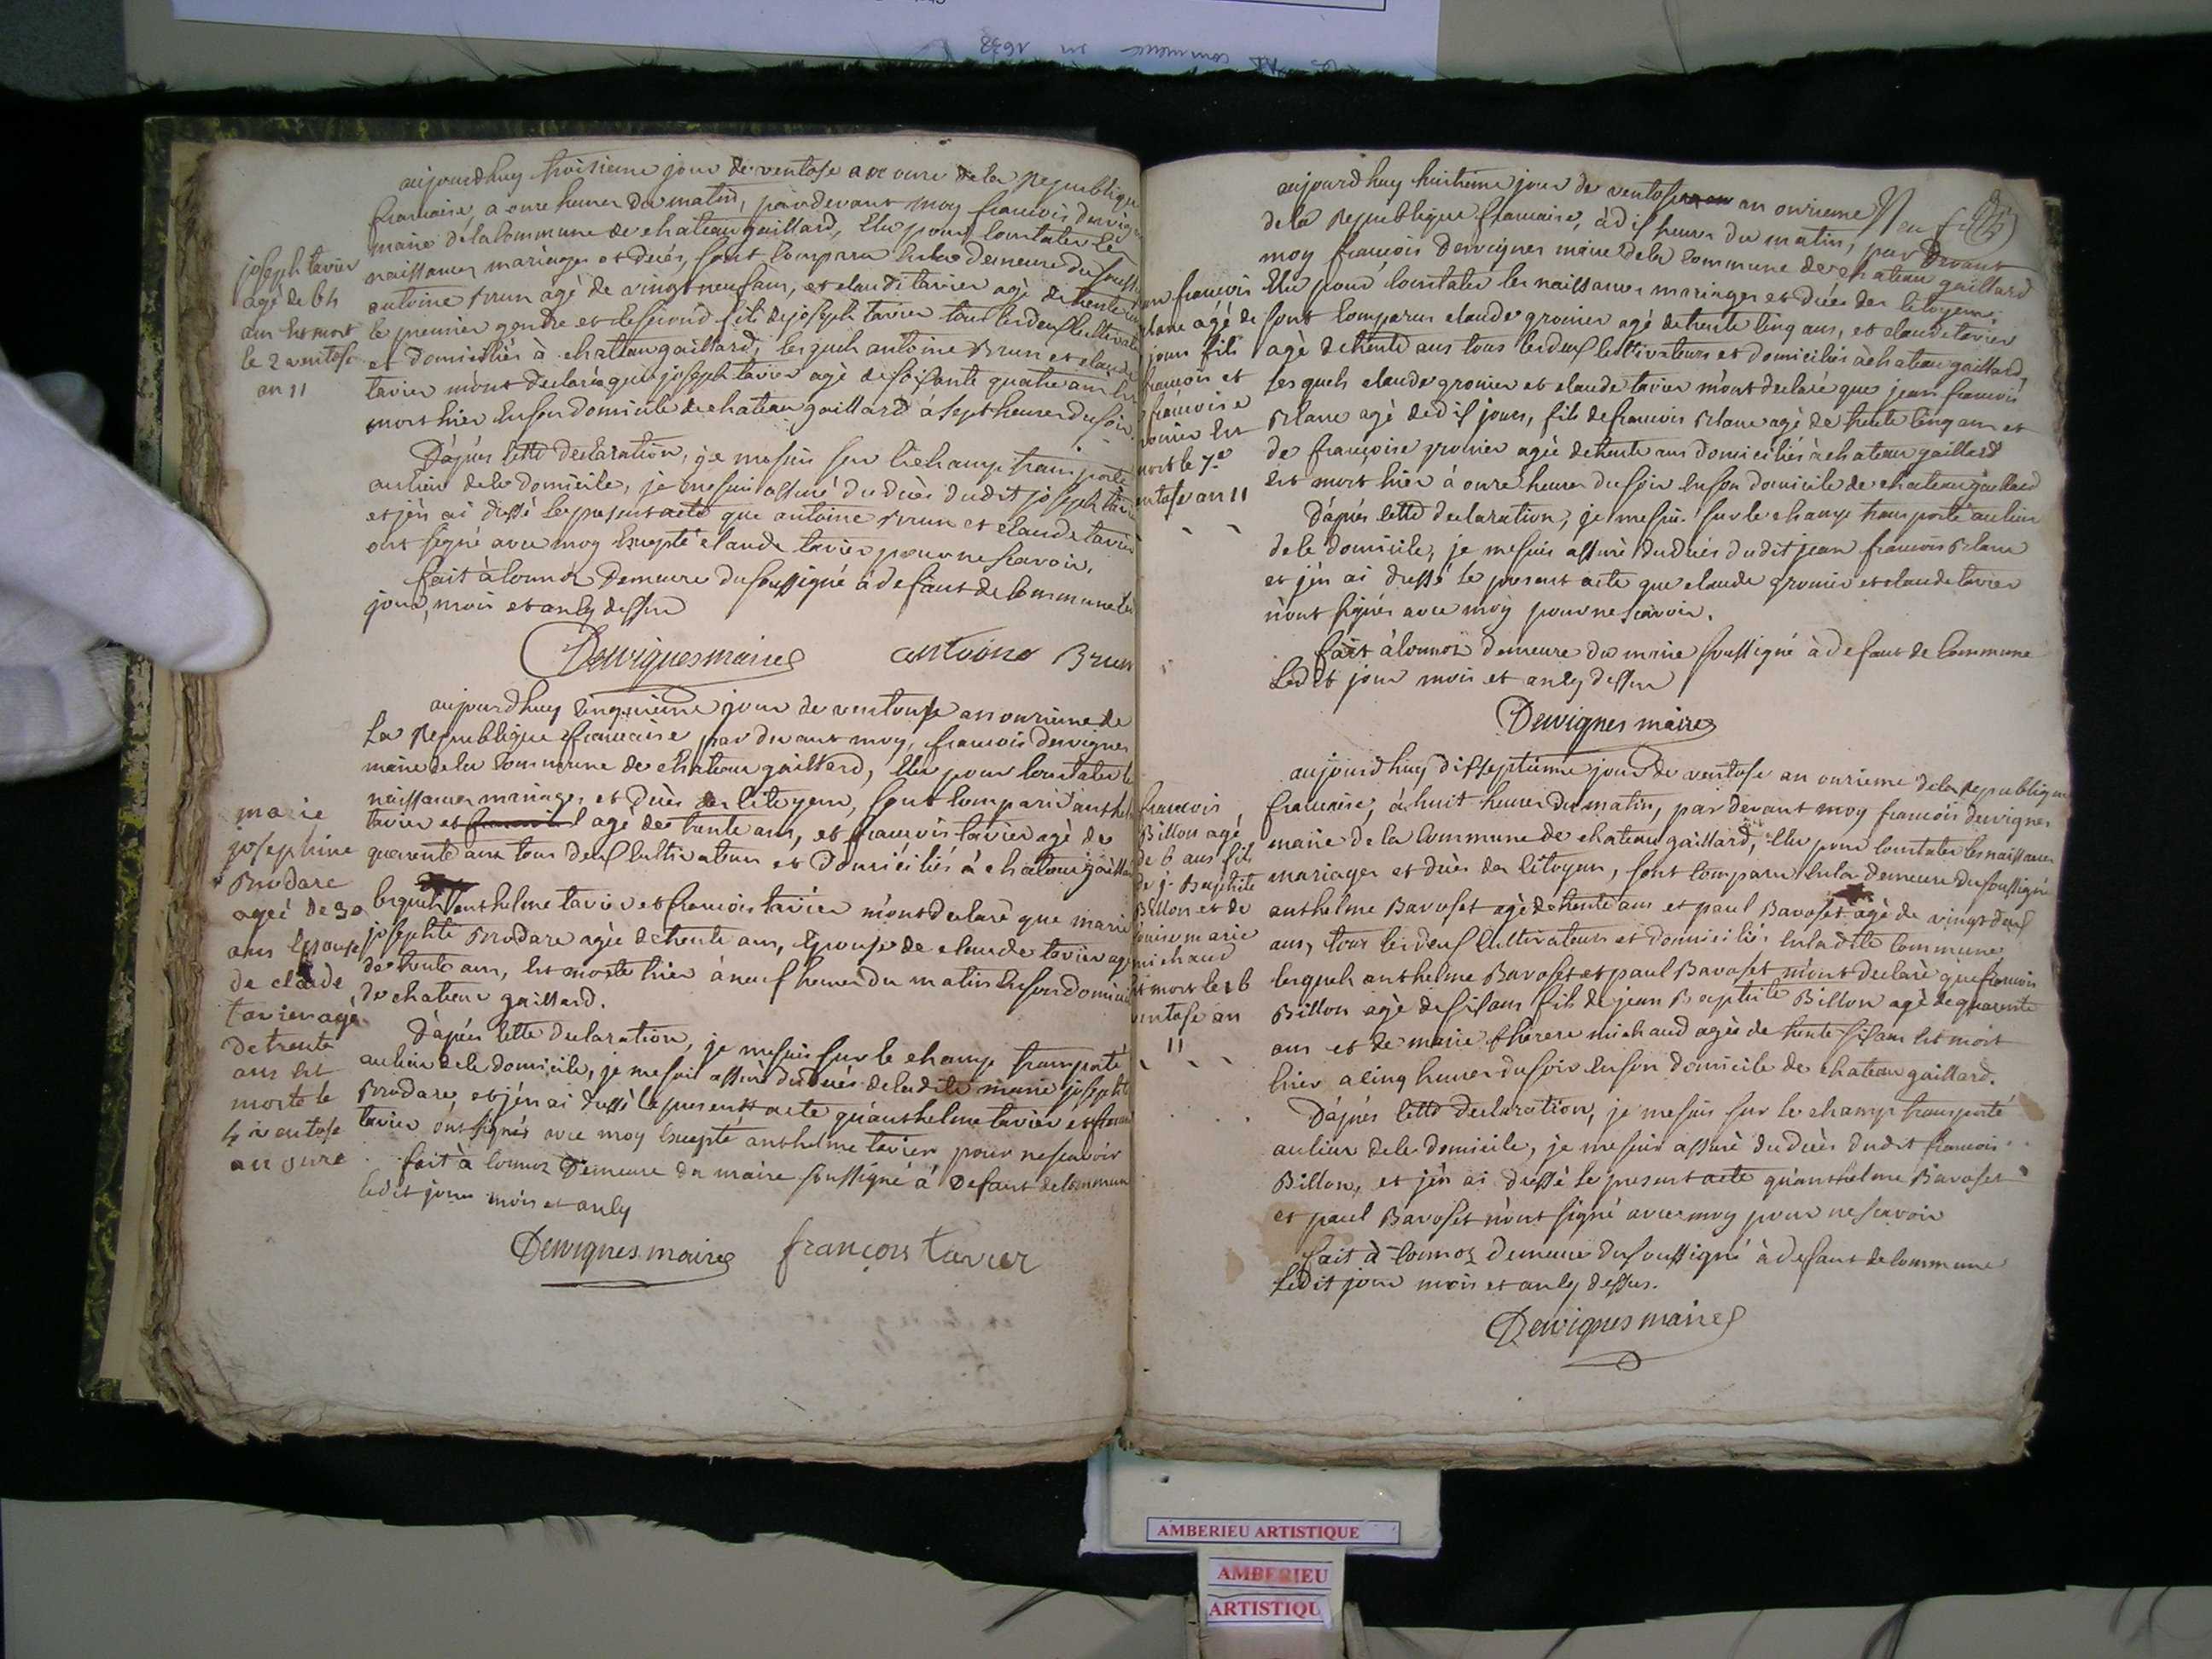 aujourdhuy troisieme jour de ventose an onze de la Republique
francaise, a onze heures du matin, pardevant moy francois dervignes
maire de la Commune de chateau gaillard, Elu pour Constater les
naissances mariages et décés, sont Comparu En la demeure du soussigné
antoine brun agé de vingt neuf ans, et claude tavier agé de trente
le premier gendre et le second fils de joseph tavier tous les deux Cultivateurs
et domiciliés à chateau gaillard, lesquels antoine Brun et claude
tavier m'ont declaré que joseph tavier agé de soisante quatre ans Est
mort hier En son domicile de chateau gaillard à sept heures du soir.
D'après Cette declaration, je me suis sur le champ transporté
au lieu de le domicile, je me suis assuré du décés dudit joseph tavier
et j'en ai dressé le present acte que antoine brun et claude tavier
ont signé avec moy Excepté claude tavier pour ne scavoir.
fait à Cormoz Demeure du soussigné à defaut de Commune les
jour, mois et an cy dessus
Dervignes maire antoine Brun
joseph tavier
agé de 64
ans Est mort
le 2 ventose
an 11
aujourdhuy Cinquieme jour de ventouse an onzieme de
La Republique francaise par devant moy, francois dervignes
maire de la Commune de chateau gaillard, Elu pour Constater les
naissances mariages et décès des Citoyens, sont Comparu anthelme
tavier et agé de trente ans, et francois tavier agé de
quarente ans tous deux Cultivateurs et domiciliés à chateau gaillard
lesquels anthelme tavier et francois tavier m'ont declaré que marie
josephte Brodare agée de trente ans, Epouse de claude tavier agé
de trente ans, Est morte hier à neuf heures du matin En son domicile
de chateau gaillard.
D'après Cette declaration, je me suis sur le champ transporté
au lieu de le domicile, je me suis assuré du décés de ladite marie josephte
Brodare, et j'en ai dressé le present acte qu'anthelme tavier et francois
tavier ont signés avec moy Excepté anthelme tavier pour ne scavoir
fait à Cormoz Demeure du maire soussigné à Defaut de Commune
ledit jour mois et an cy
Dervignes maire françois tavier
marie
josephine
Brodare
ageé de 30
ans Epouse
de claude
tavier agé
de trente
ans Est
morte le
4 ventose
an onze
aujourdhuy huitieme jour de ventose an onzieme
de la Republique francaise, à dix heures du matin, par devant
moy francois Dervignes maire de la Commune de chateau gaillard
Elu pour Constater les naissances mariages et décés des Citoyens;
sont Comparus claude gronier agé de trente Cinq ans, et claude tavier
agé de trente ans tous les deux Cultivateurs et domiciliés à chateau gaillard,
lesquels claude gronier et claude tavier m'ont declaré que jean francois
Blanc agé de dix jours, fils de francois Blanc agé de trente Cinq ans et
de françoise gronier agée de trente ans domiciliés à chateau gaillard
Est mort hier à onze heures du soir En son domicile de chateau gaillard
D'après Cette declaration, je me suis sur le champ transporté au lieu
de le domicile, je me suis assuré du décés dudit jean francois Blanc
et j'en ai dressé le present acte que claude gronier et claude tavier
n'ont signés avec moy pour ne scavoir.
fait à Cormoz demeure du maire soussigné à defaut de Commune
Ledit jour mois et an cy dessus
Dervignes maire
francois
Blanc agé de
jours fils
francois et
françoise
gronier Est
mort le 7e
ventose an 11
aujourdhuy dix septieme jour de ventose an onzieme de la republique
francaise, à huit heures du matin, par devant moy francois dervignes
maire de la Commune de chateau gaillard, Elu pour Constater les naissances
mariages et décés des Citoyens, sont Comparu En la demeure du soussigné
anthelme Bavoset agé de trente ans et paul Bavoset agé de vingt deux
ans, tous les deux Cultivateurs et domiciliés En ladite Commune
lesquels anthelme Bavoset et paul Bavoset m'ont declaré que francois
Billon agé de six ans fils de jean Baptiste Billon agé de quarente
ans et de marie therese michaud agée de trente six ans Est mort
hier a Cinq heures du soir En son domicile de chateau gaillard.
D'après Cette declaration, je me suis sur le champ transporté
au lieu de le domicile, je me suis assuré du décés dudit francois
Billon, et j'en ai dressé le present acte qu'anthelme Bavoset
et paul Bavoset n'ont signé avec moy pour ne scavoir
fait à Cormoz demeure du soussigné à defaut de Commune
Ledit jour mois et an cy dessus.
Dervignes maire
francois
Billon agé
de 6 ans fils
de j. Baptiste
Billon et de
Louise marie
michaud
Est mort le 16
ventose an
11
AMBERIEU ARTISTIQUE
AMBERIEU
ARTISTIQU